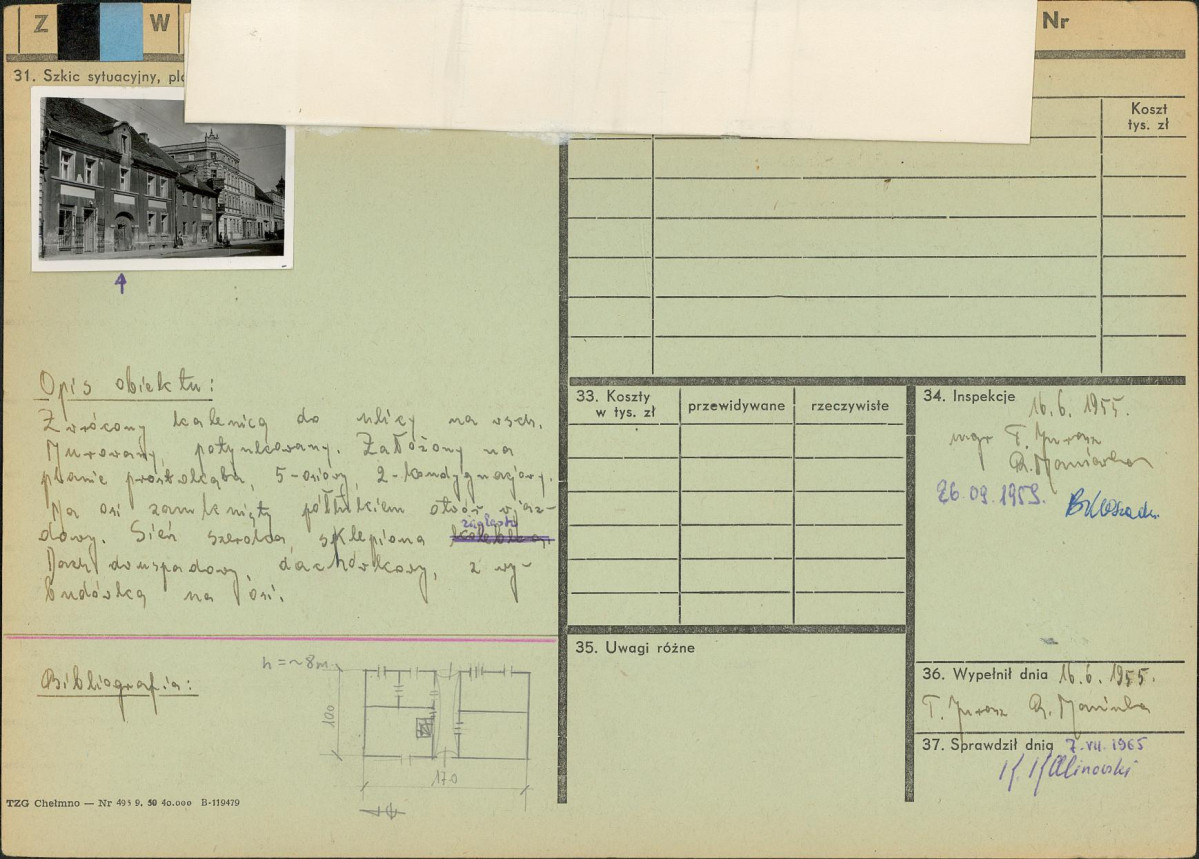 Z W Nr
31. Szkic sytuacyjny,
Koszt
tys. zł
Opis obiektu:
Zwrócony kalenicą do ulicy na wsch.
Murowany, potynkowany. Założony na
planie prostokąta, 5-osiowy, 2-kondygnacyjowy.
Na osi zamknięty półłukiem otwór wjaz-
zaglasta
dowy. Sień szeroka, sklepiona
Dach dwuspadowy, dachówkowy, z wy-
budówką na osi.
Bibliografia:
h = ~8m
100
170
TZG Chełmno — Nr 493 9. 50 40.000 B-119479
33. Koszty
w tys. zł
przewidywane
rzeczywiste
34. Inspekcje
16.6. 1955.
mgr T. Jurasz
26.09.1959.
35. Uwagi różne
36. Wypełnił dnia 16.6. 1955.
T. Jurasz
37. Sprawdził dnia 7.VII.1965
K. Kalinowski